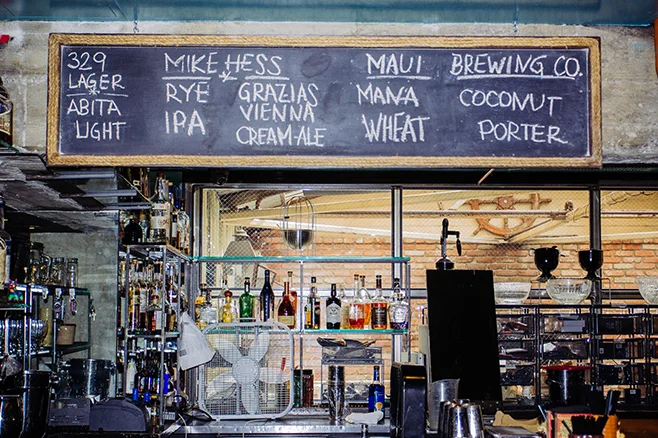 329
LAGER
ABITA
LIGHT
MIKE HESS
RYE
IPA
GRAZIAS
VIENNA
CREAM·ALE
MAUI BREWING CO.
MANA
WHEAT
COCONUT
PORTER